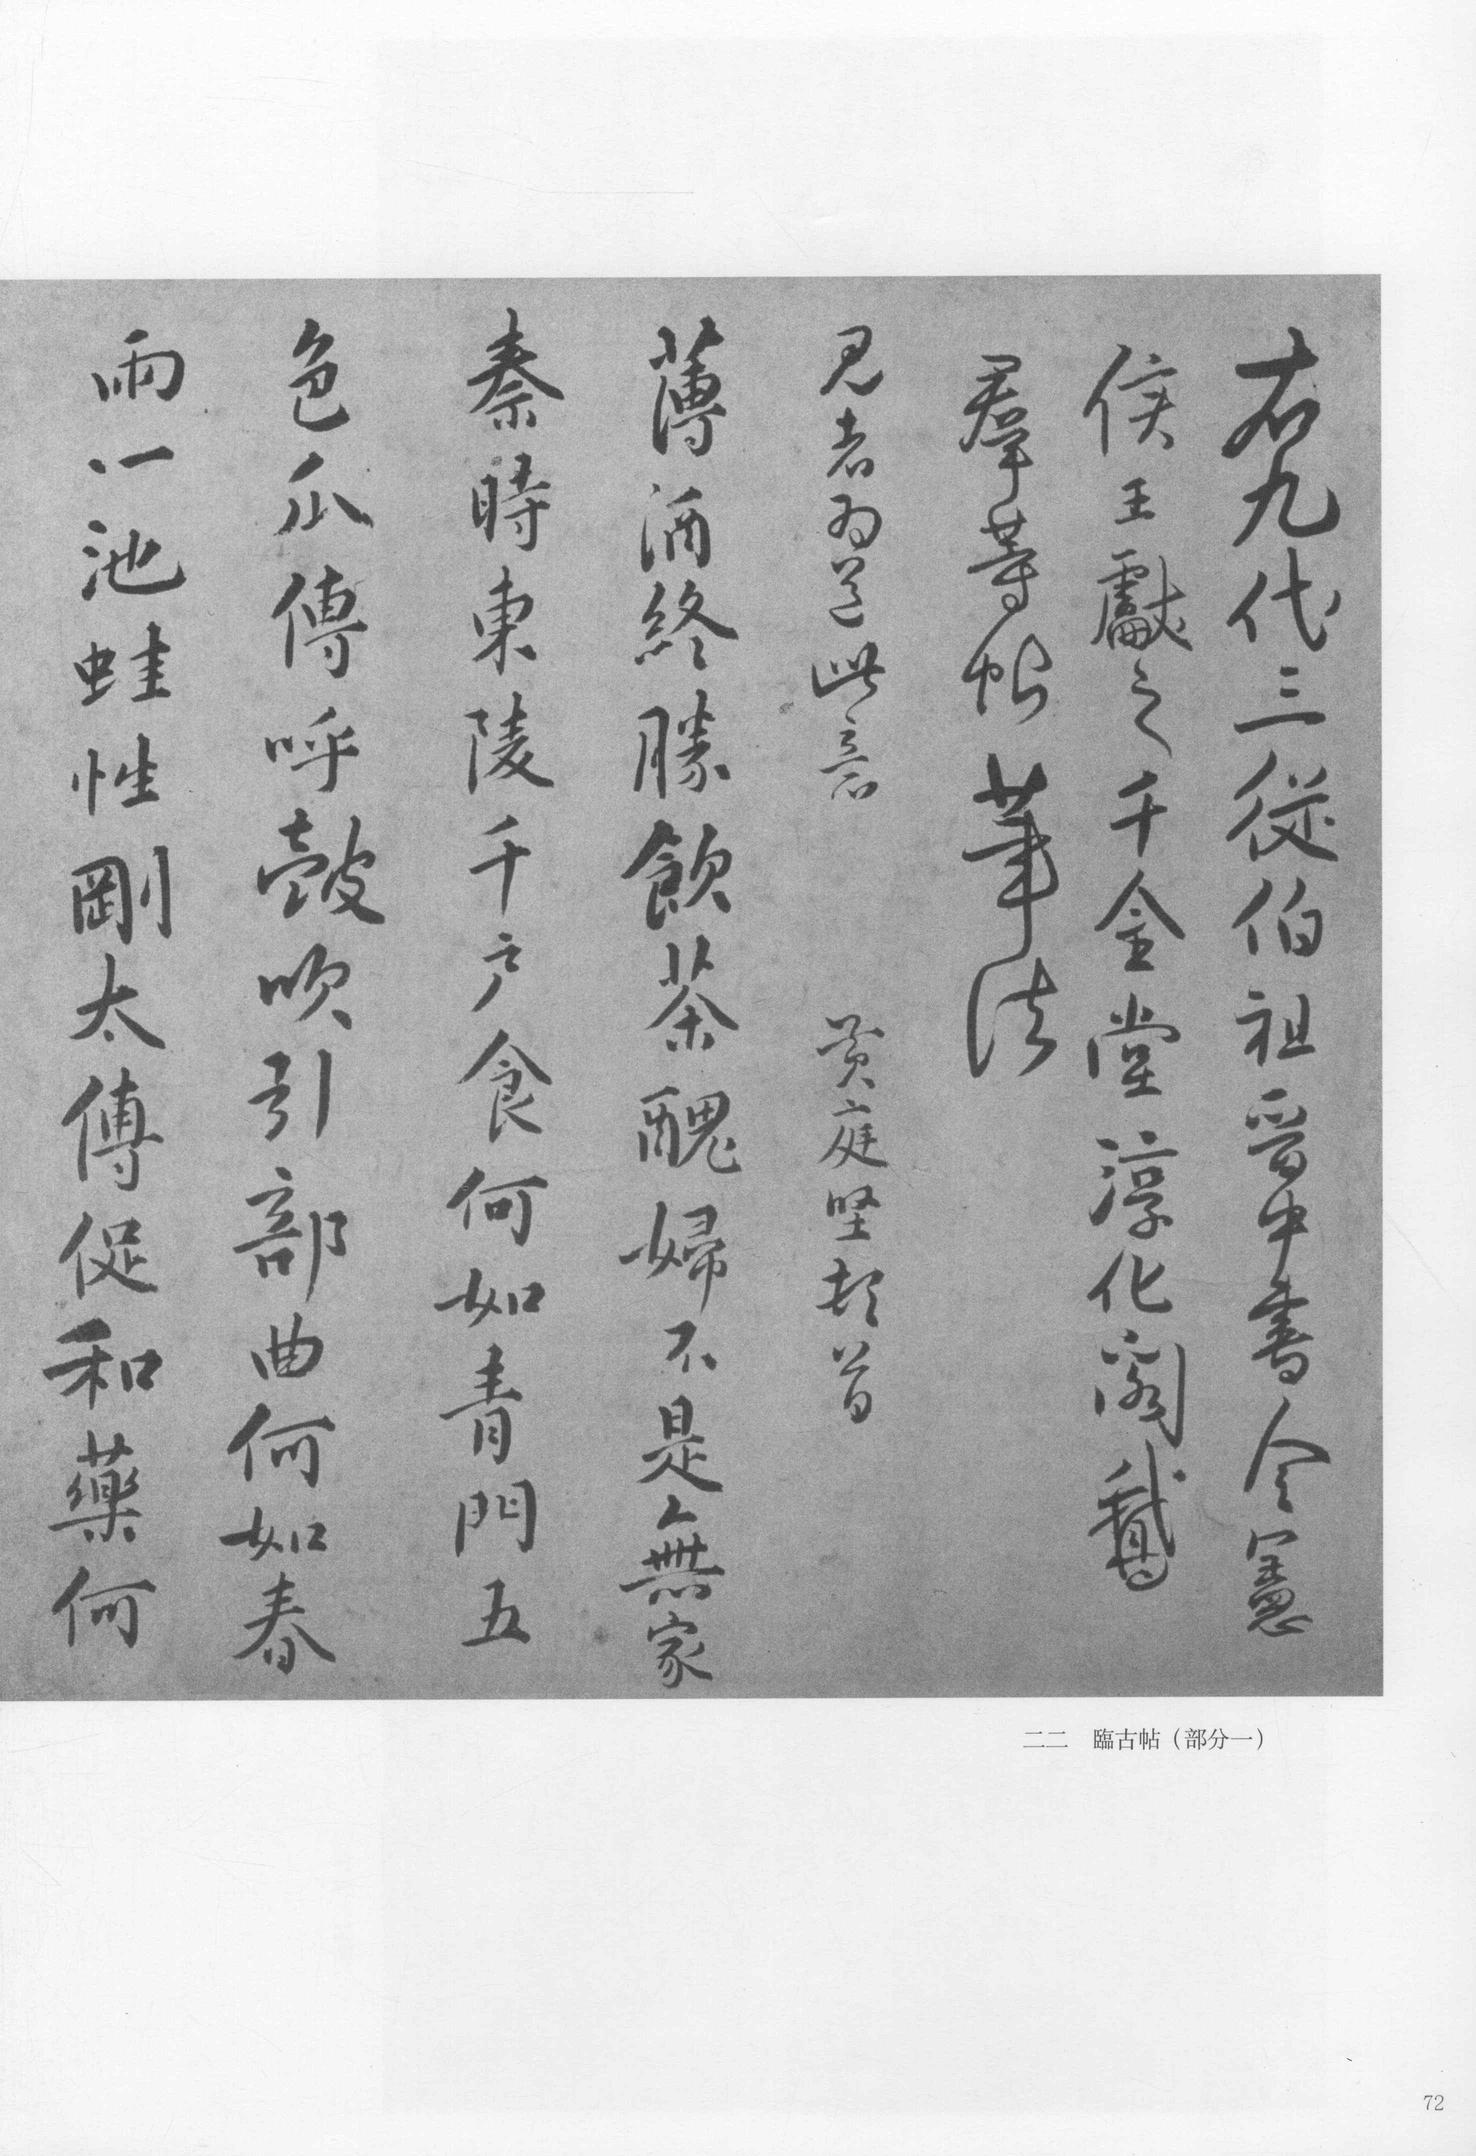 右九代三從伯祖晉中書令憲
侯王獻之千金堂淳化閣鵝
群等帖筆法
見者為道此意 黃庭堅頓首
薄酒終勝飲茶醜婦不是無家
秦時東陵千戶食何如青門五
色瓜傳呼鼓吹引部曲何如春
雨一池蛙性剛太傅促和藥何
二二 臨古帖（部分一）
72